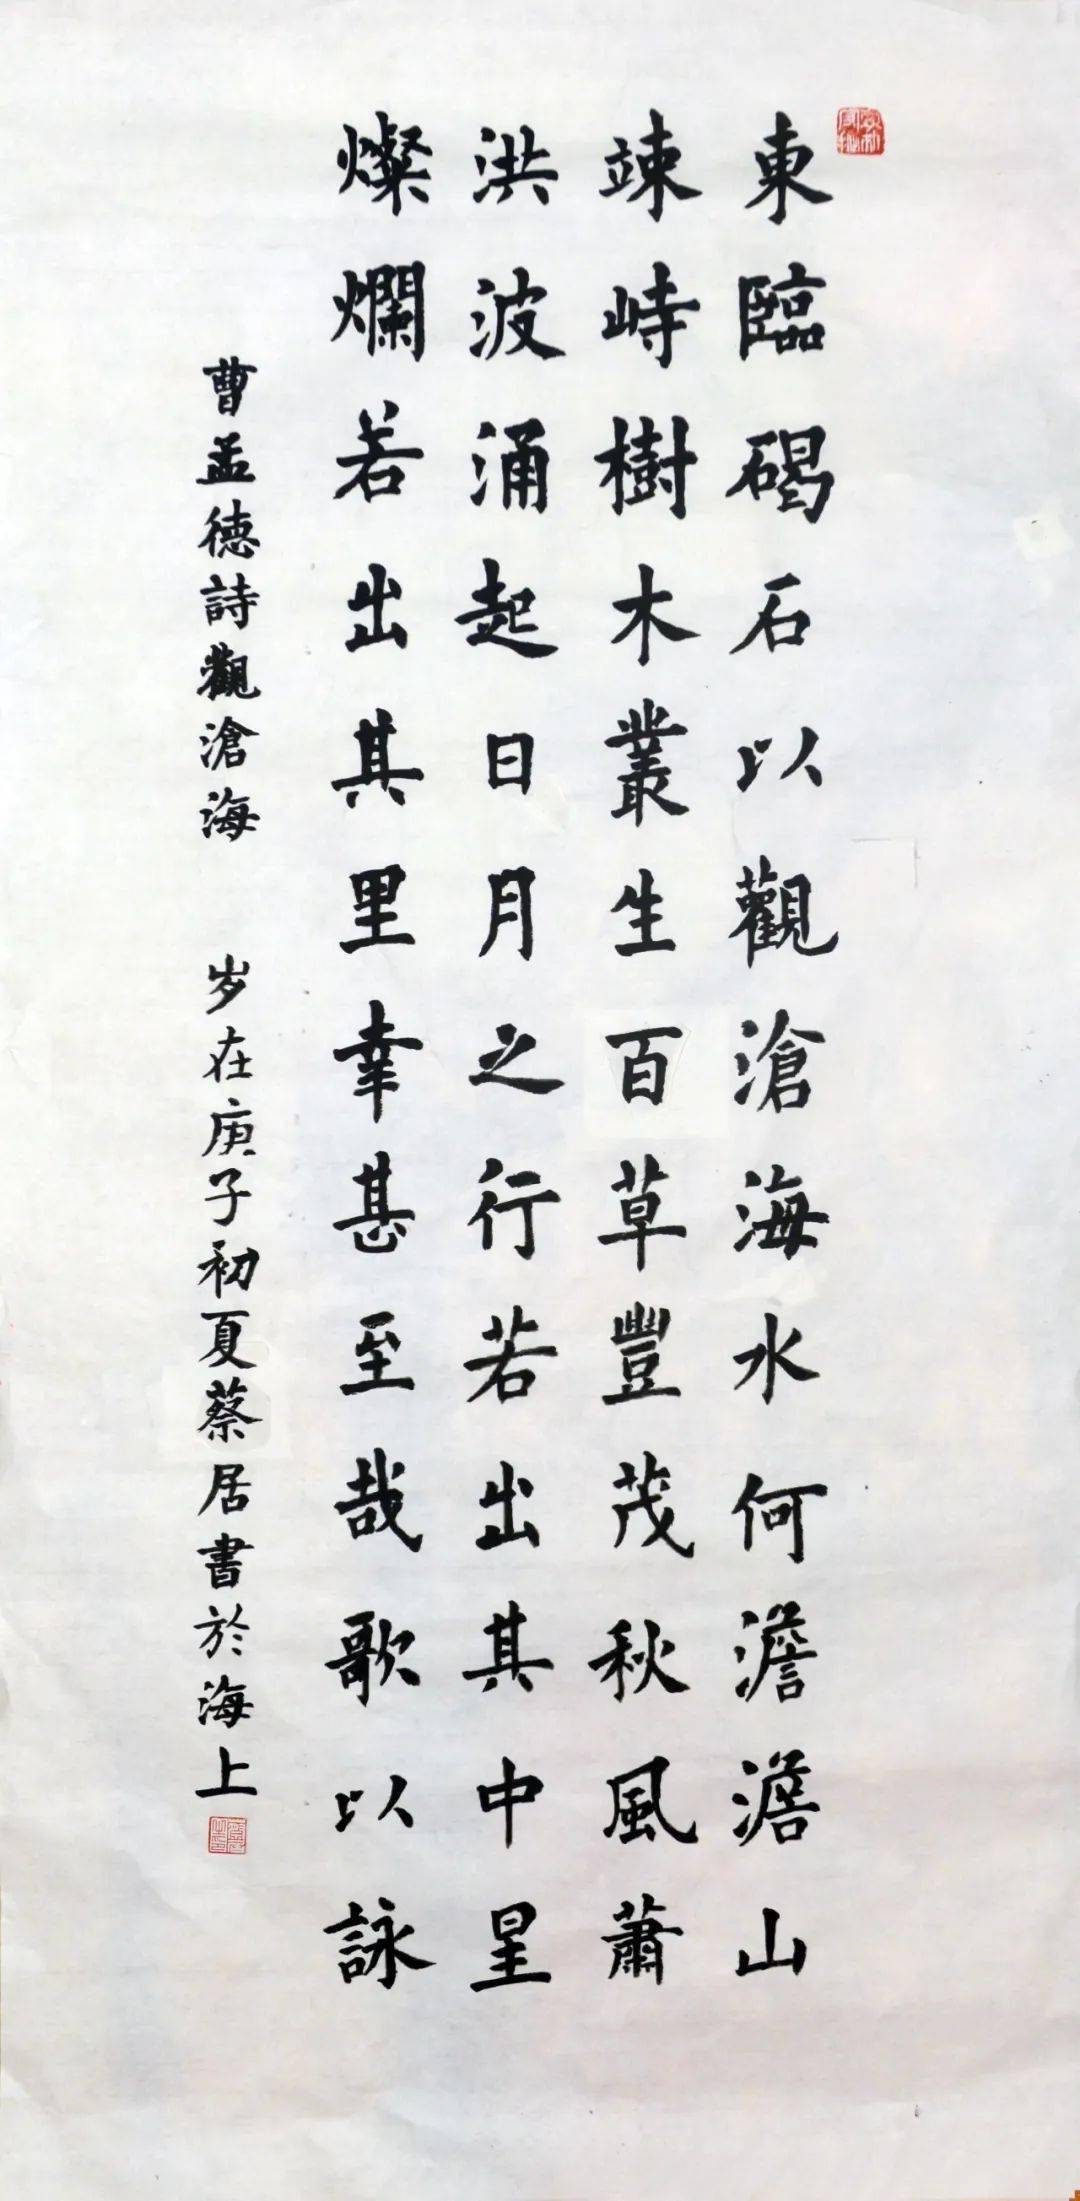 東臨碣石以觀滄海水何澹澹山
竦峙樹木叢生百草豐茂秋風蕭
洪波涌起日月之行若出其中星
燦爛若出其里幸甚至哉歌以詠
曹孟德詩觀滄海 岁在庚子初夏蔡居書於海上